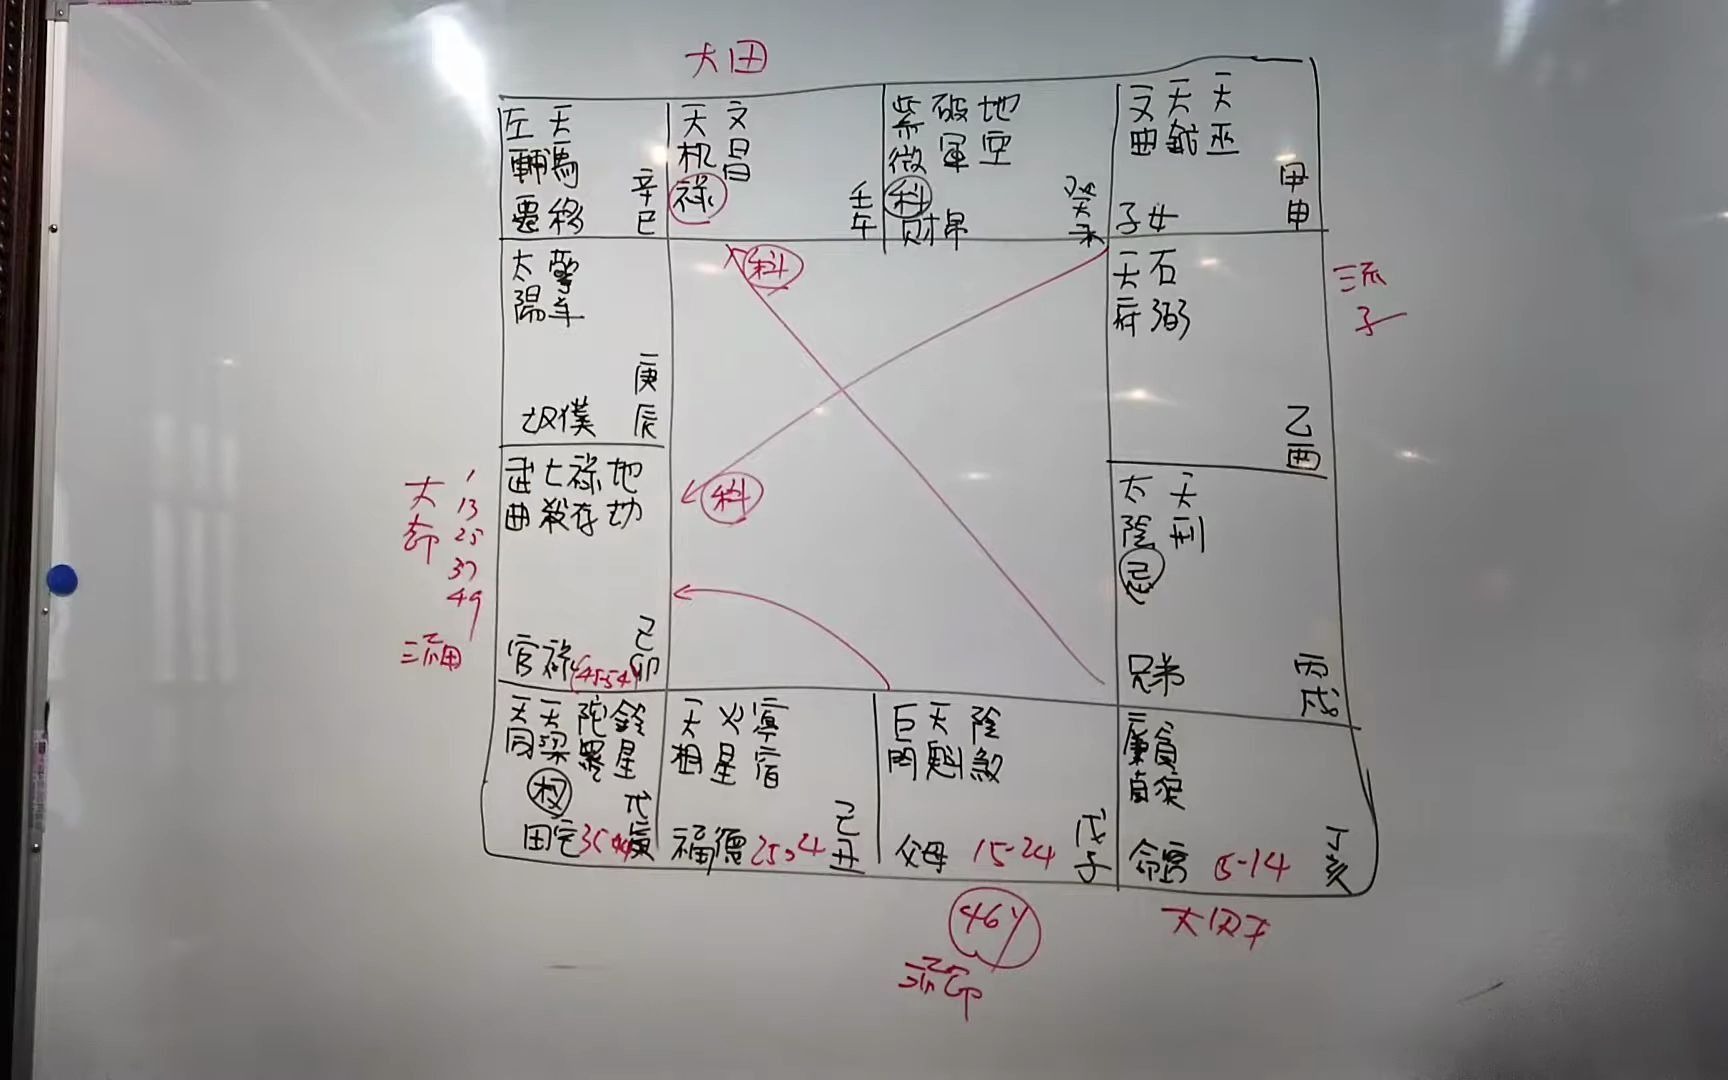 大田
左 天
輔 馬
辛
遷移 巳
天 文
机 昌
祿
壬
午
紫 破 地
微 軍 空
科
財帛
文 天 天
曲 鉞 巫
甲
子女 申
太 擎
陽 羊
庚
奴僕 辰
科
天 右
府 弼
乙
酉
流
子
武 七 祿 地
曲 殺 存 劫
己
官祿 45-54 卯
大 1
命 13
25
37
49
流田
科
太 天
陰 刑
忌
丙
兄弟 戌
天 天 陀 鈴
同 梁 羅 星
权
戊
田宅 寅
天 火
相 星 宿
己
福德 丑
巨 天 陰
門 魁 煞
戊
父母 15-24 子
廉 貪
貞 狼
丁
命宮 5-14 亥
46y
流命